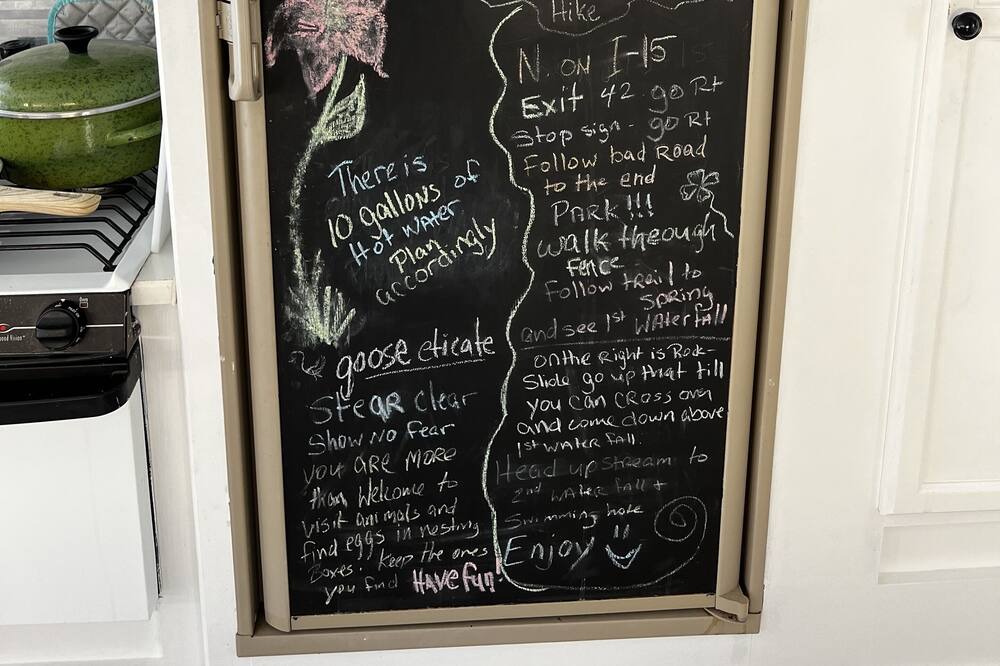 There is
10 gallons of
Hot Water
Plan
accordingly
goose eticate
Stear clear
Show no fear
you are more
than Welcome to
visit animals and
find eggs in nesting
Boxes. Keep the ones
you find Have fun!
Hike
N. on I-15
Exit 42 go Rt
Stop sign - go Rt
Follow bad Road
to the end
Park!!!
walk through
fence
Follow trail to
spring
and see 1st Waterfall
on the Right is Rock-
Slide go up that till
you can cross over
and come down above
1st water fall.
Head upstream to
2nd water fall +
Swimming hole
Enjoy